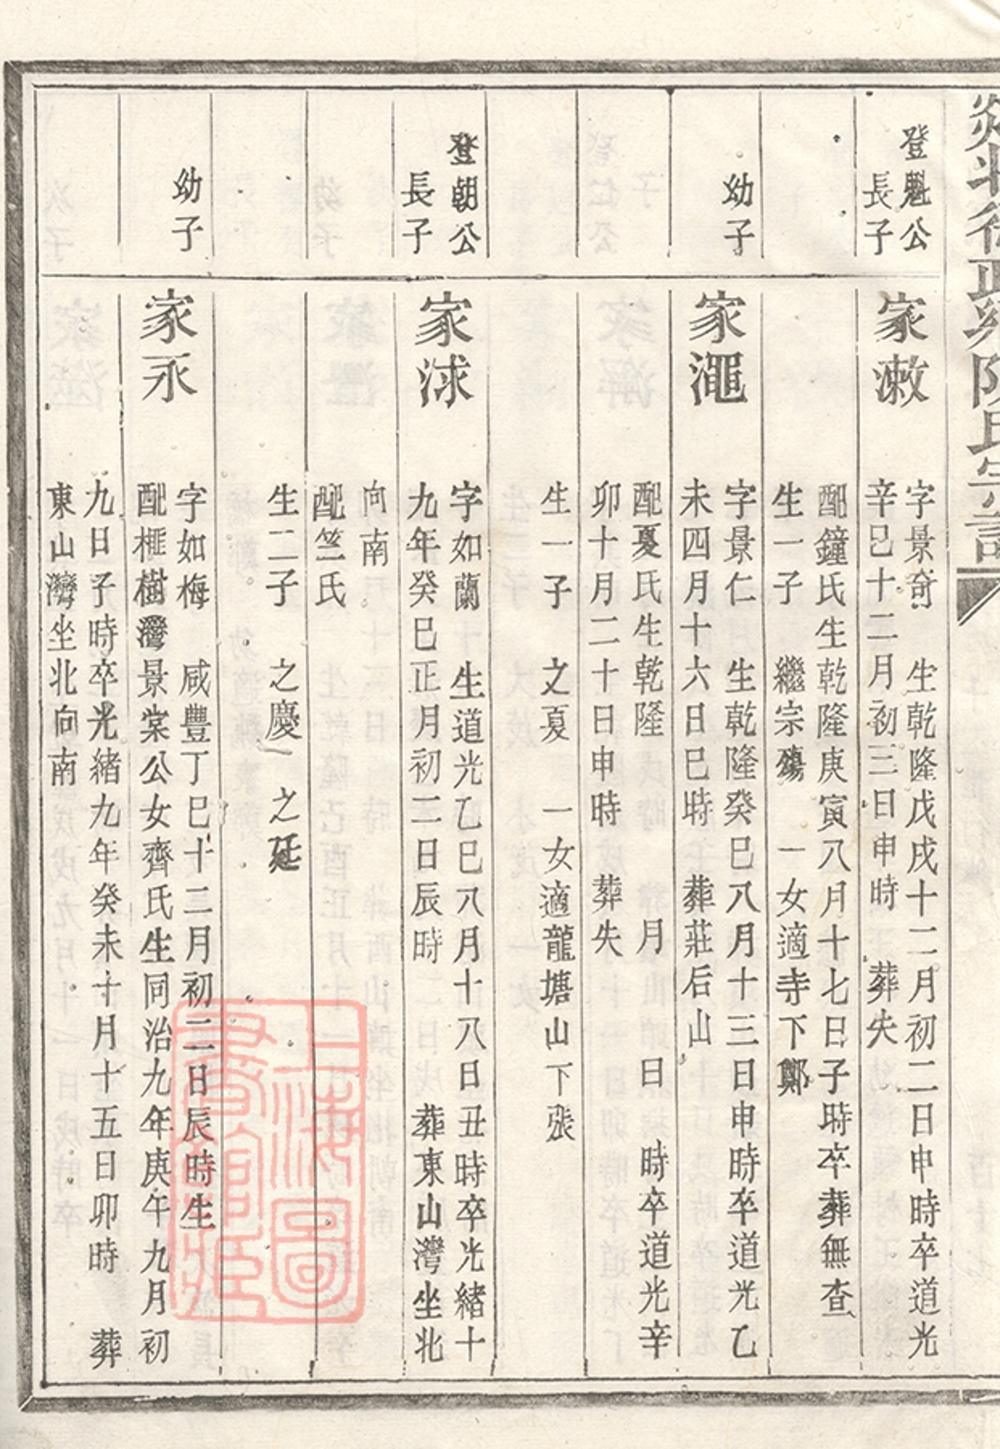 陳氏宗譜
登魁公
長子
家漱
字景奇 生乾隆戊戌十二月初二日申時卒道光
辛巳十二月初三日申時 葬失
配鐘氏生乾隆庚寅八月十七日子時卒葬無查
生一子 繼宗殤 一女適寺下鄭
幼子
家澠
字景仁 生乾隆癸巳八月十三日申時卒道光乙
未四月十六日巳時 葬莊后山
配夏氏生乾隆 月 日 時卒道光辛
卯十月二十日申時 葬失
生一子 文夏 一女適龍塘山下張
登朝公
長子
家浗
字如蘭 生道光乙巳八月十八日丑時卒光緒十
九年癸巳正月初二日辰時 葬東山灣坐北
向南
配竺氏
生二子 之慶 之廷
幼子
家永
字如梅 咸豐丁巳十二月初二日辰時生
配榧樹灣景棠公女齊氏生同治九年庚午九月初
九日子時卒光緒九年癸未十月十五日卯時 葬
東山灣坐北向南
上海圖書館藏